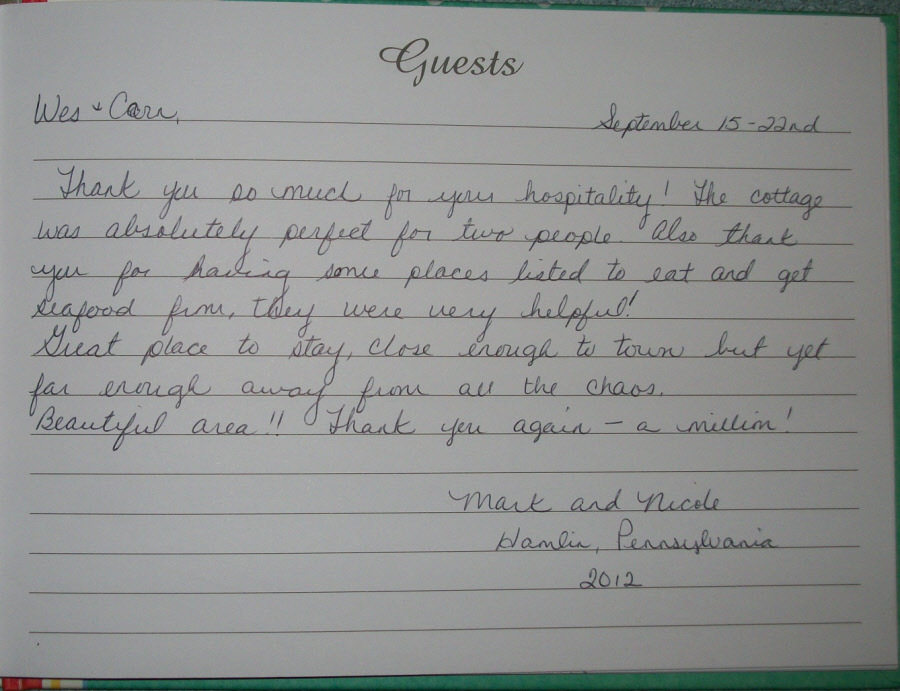 Guests
Wes + Carr,
September 15-22nd
Thank you so much for your hospitality! The cottage
was absolutely perfect for two people. Also thank
you for having some places listed to eat and get
seafood from, they were very helpful!
Great place to stay, close enough to town but yet
far enough away from all the chaos.
Beautiful area!! Thank you again - a million!
Mark and Nicole
Hamlin, Pennsylvania
2012